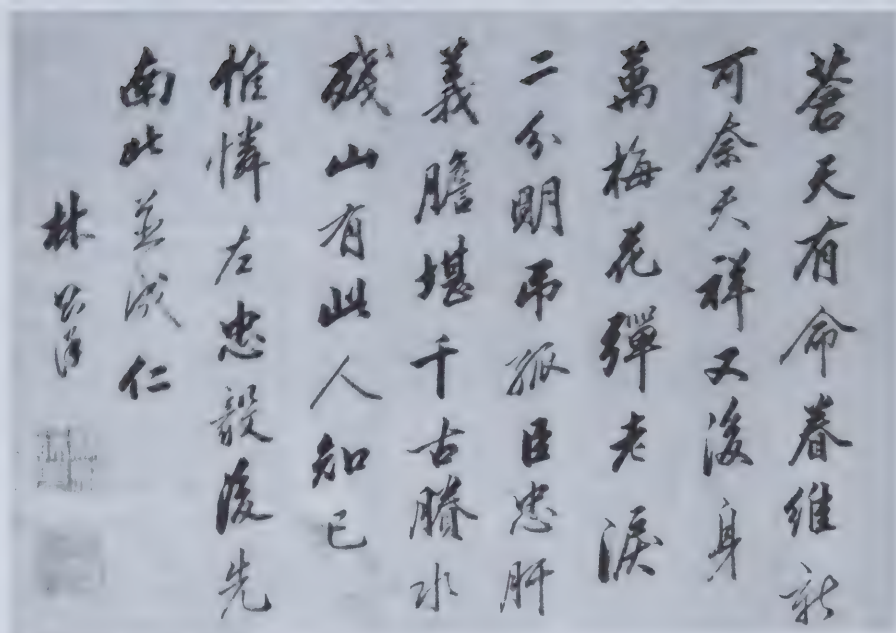 蒼天有命眷維新
可奈天祥又後身
萬梅花彈老淚
二分明弔孤臣忠肝
義膽堪千古賸水
殘山有此人知己
惟憐左忠毅後先
南北並成仁
林